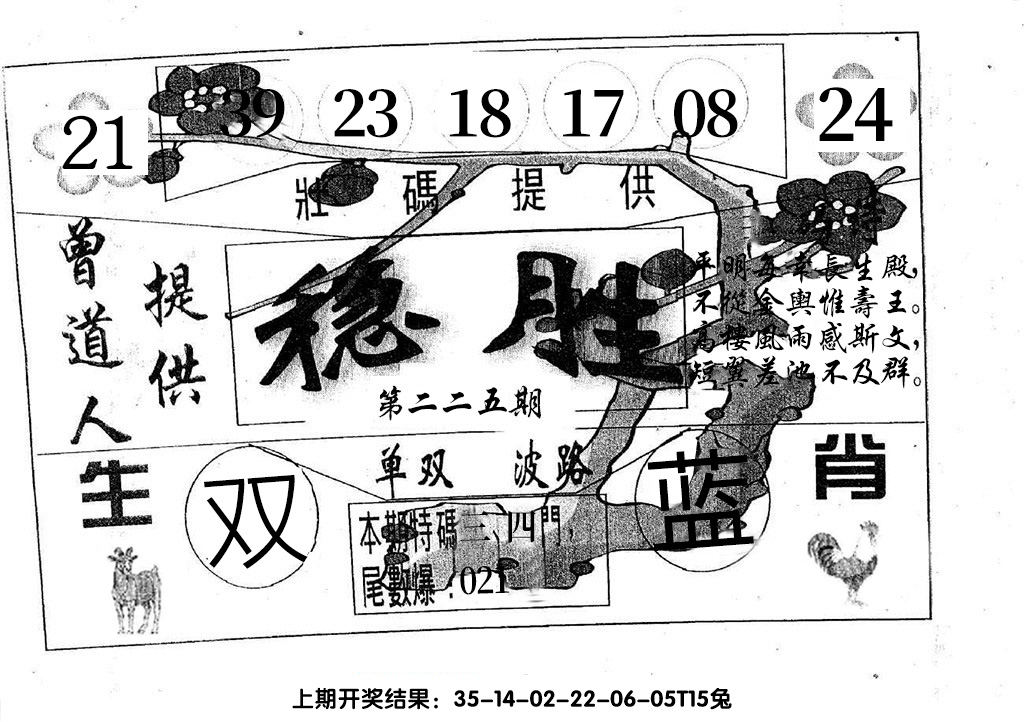 21 39 23 18 17 08 24
壯碼提供
特
曾道人
提供
稳胜
第二二五期
平明每幸長生殿,
不從金輿惟壽王。
高樓風雨感斯文,
短翼差池不及群。
单双 波路
生 双 蓝 肖
本期特碼三、四門,
尾數爆:021
上期开奖结果:35-14-02-22-06-05T15兔